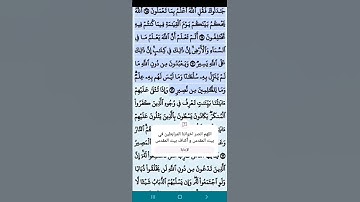 جَٰدَلُوكَ فَقُلِ ٱللَّهُ أَعْلَمُ بِمَا تَعْمَلُونَ ٱللَّهُ
يَحْكُمُ بَيْنَكُمْ يَوْمَ ٱلْقِيَٰمَةِ فِيمَا كُنتُمْ فِيهِ
تَخْتَلِفُونَ أَلَمْ تَعْلَمْ أَنَّ ٱللَّهَ يَعْلَمُ مَا فِى
ٱلسَّمَآءِ وَٱلْأَرْضِ إِنَّ ذَٰلِكَ فِى كِتَٰبٍ إِنَّ ذَٰلِكَ
عَلَى ٱللَّهِ يَسِيرٌ وَيَعْبُدُونَ مِن دُونِ ٱللَّهِ مَا
لَمْ يُنَزِّلْ بِهِۦ سُلْطَٰنًا وَمَا لَيْسَ لَهُم بِهِۦ عِلْمٌ
وَمَا لِلظَّٰلِمِينَ مِن نَّصِيرٍ وَإِذَا تُتْلَىٰ عَلَيْهِمْ
ءَايَٰتُنَا بَيِّنَٰتٍ تَعْرِفُ فِى وُجُوهِ ٱلَّذِينَ كَفَرُوا۟
ٱلْمُنكَرَ يَكَادُونَ يَسْطُونَ بِٱلَّذِينَ يَتْلُونَ عَلَيْهِمْ
اللهم انصر اخواننا المرابطين في
بيت المقدس و أكناف بيت المقدس
ٱلَّذِينَ تَدْعُونَ مِن دُونِ ٱللَّهِ لَن يَخْلُقُوا۟ ذُبَابًا
وَلَوِ ٱجْتَمَعُوا۟ لَهُۥ وَإِن يَسْلُبْهُمُ ٱلذُّبَابُ شَيْـًٔا لَّا